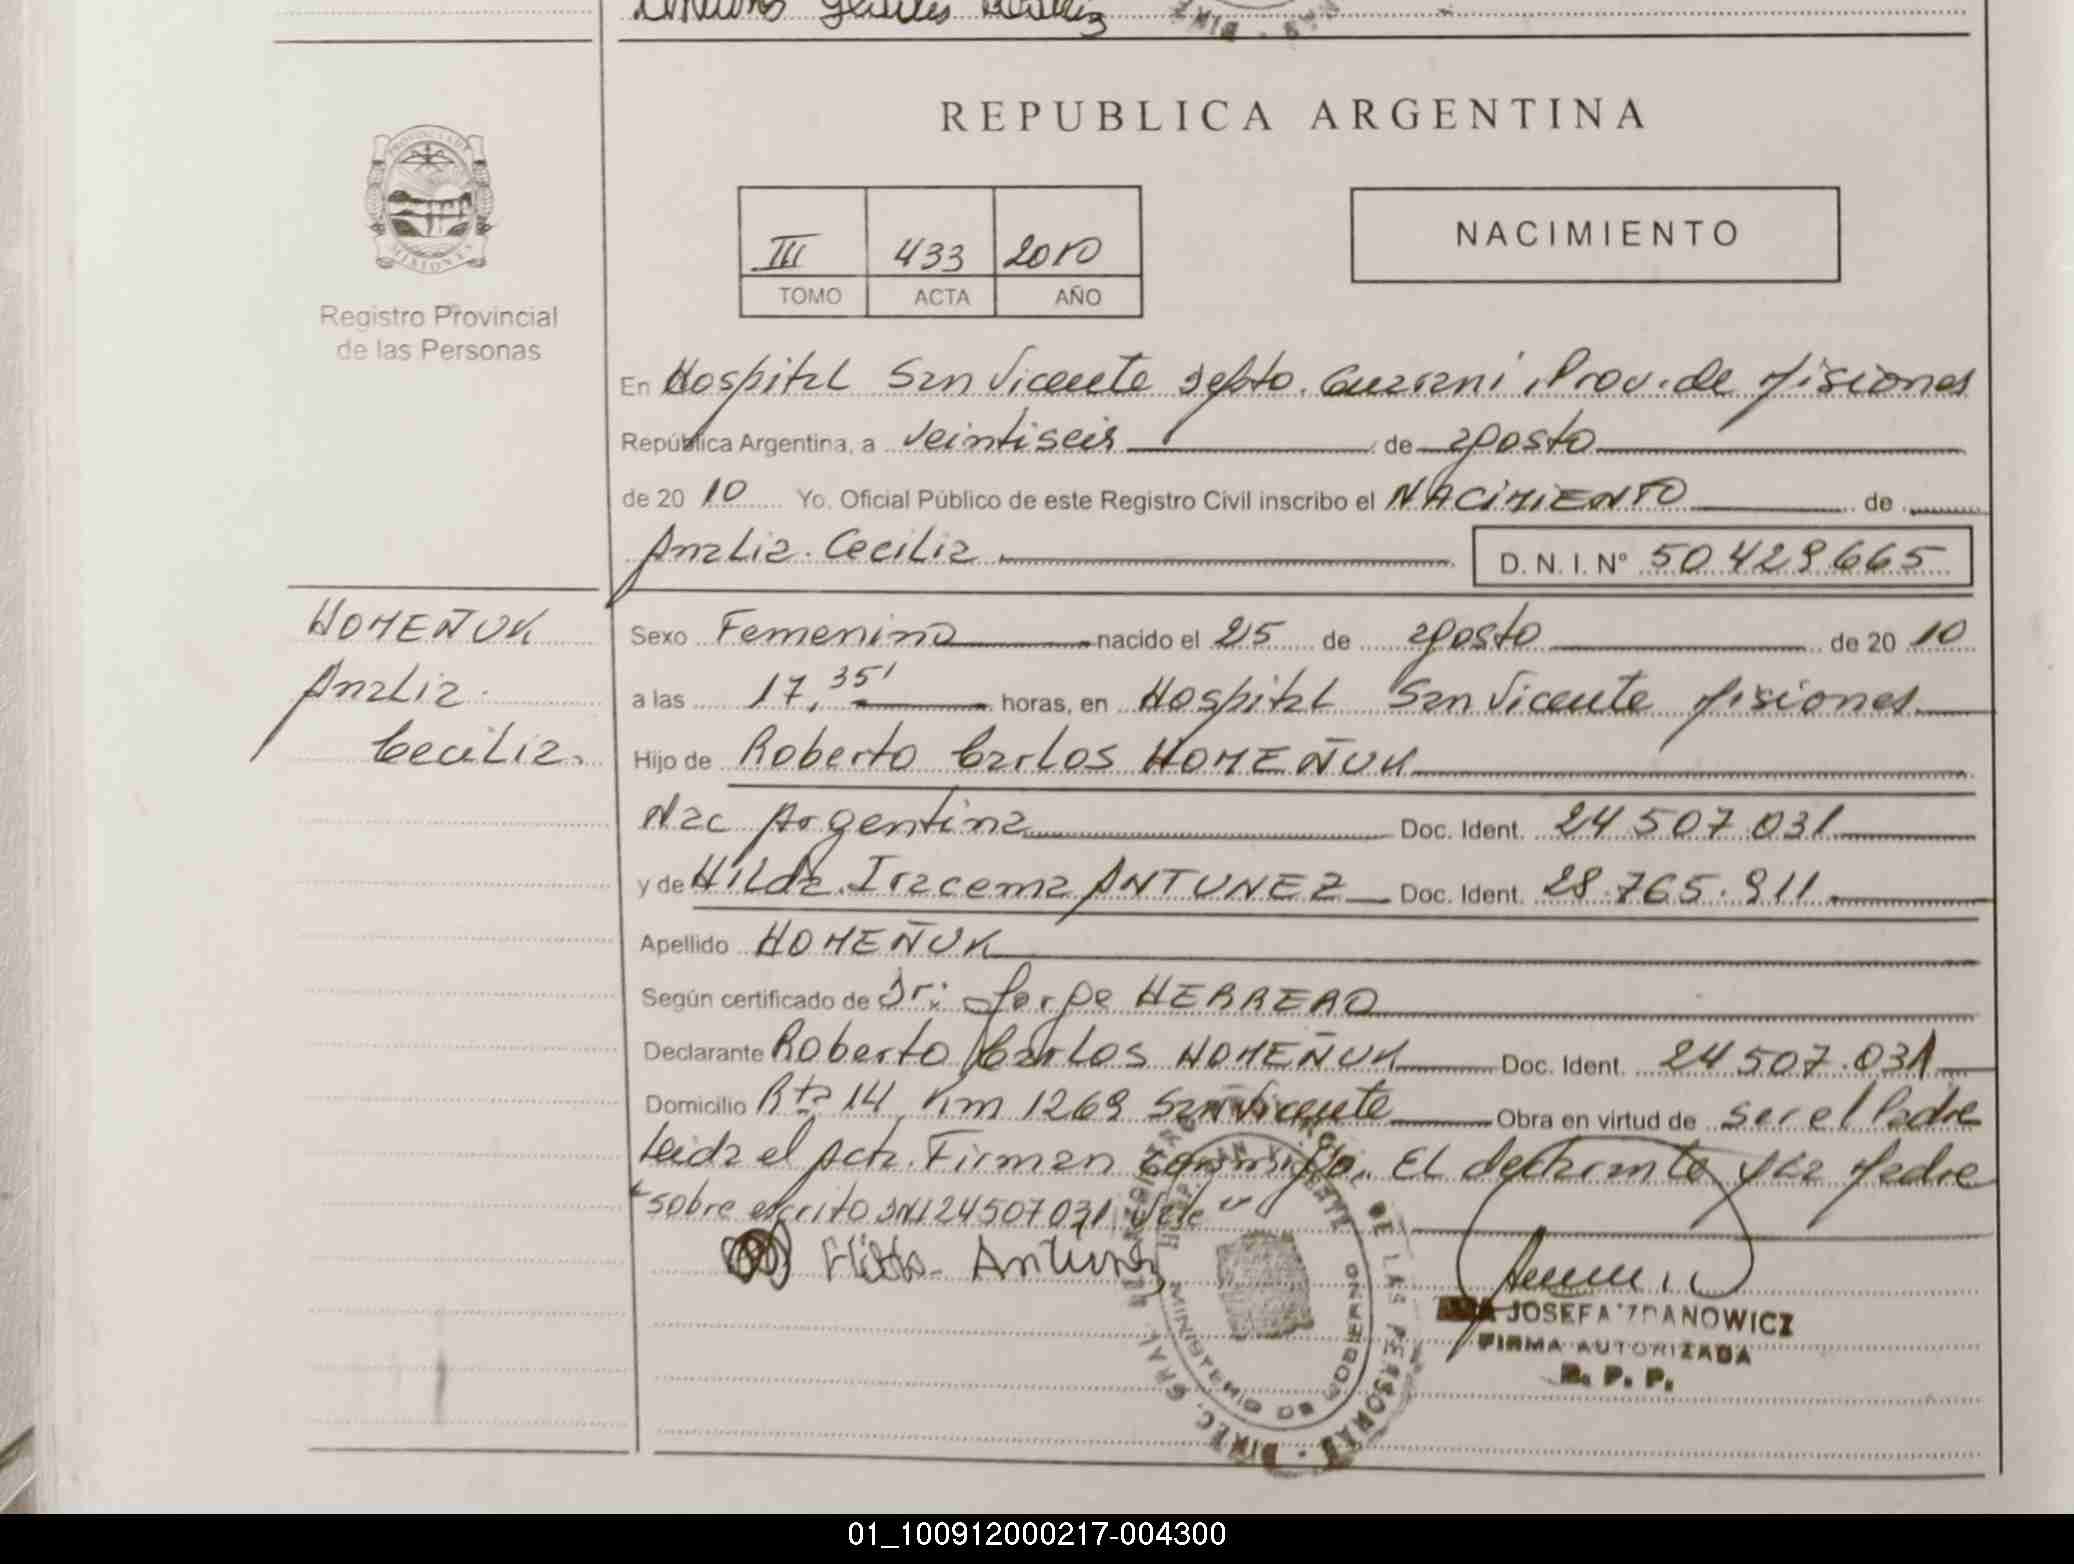 REPUBLICA ARGENTINA
PROVINCIA DE
MISIONES
Registro Provincial
de las Personas
III 433 2010
TOMO ACTA AÑO
NACIMIENTO
En Hospital San Vicente Depto. Guarani, Prov. de Misiones
República Argentina, a veintiseis de agosto
de 20 10 Yo, Oficial Público de este Registro Civil inscribo el NACIMIENTO de
Analia Cecilia D. N. I. N° 50429665
HOMEÑUK
Analia
Cecilia.
Sexo Femenino nacido el 25 de agosto de 20 10
a las 17,35' horas, en Hospital San Vicente Misiones
Hijo de Roberto Carlos HOMEÑUK
Nac Argentina Doc. Ident. 24507.031
y de Hilda Iracema ANTUNEZ Doc. Ident. 28.765.911
Apellido HOMEÑUK
Según certificado de Dr: Jorge HERRERO
Declarante Roberto Carlos HOMEÑUK Doc. Ident. 24507.031
Domicilio Rta 14 Km 1269 San Vicente Obra en virtud de ser el Padre
Leida el Acta. Firman conmigo. El declarante y la Madre
"sobre escrito DNI 24507031 Vale"
Hilda Antunez
JOSEFA ZDANOWICZ
FIRMA AUTORIZADA
R. P. P.
MINISTERIO DE GOBIERNO
DE LAS PERSONAS
DIREC. GRAL.
01_100912000217-004300